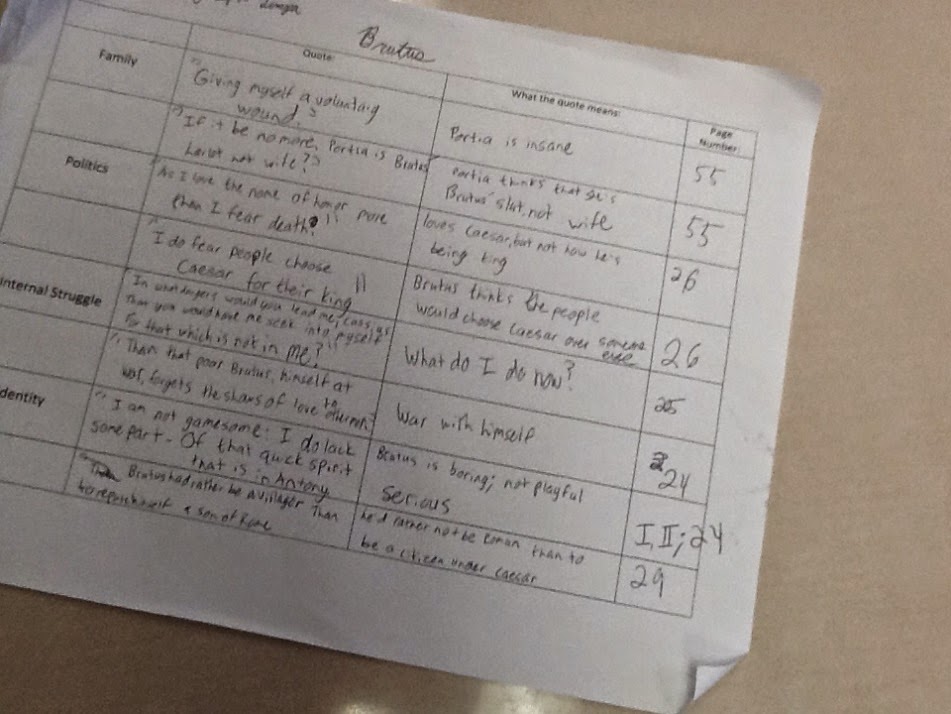 Brutus
Quote:
What the quote means:
Page
Number:
Family
"Giving myself a voluntary
wound"
Portia is insane
55
"If it be no more, Portia is Brutus'
harlot not wife"
Portia thinks that she's
Brutus' slut, not wife
55
Politics
"As I love the name of honor more
than I fear death"
loves Caesar, but not how he's
being king
26
"I do fear people choose
Caesar for their king"
Brutus thinks the people
would choose Caesar over someone
else
26
Internal Struggle
"In what dangers would you lead me, Cassius
That you would have me seek into myself
For that which is not in me?"
What do I do now?
25
"Than that poor Brutus, himself at
war, forgets the shows of love to other men"
War with himself
24
dentity
"I am not gamesome: I do lack
some part. Of that quick spirit
that is in Antony
Brutus is boring; not playful
serious
I, II; 24
Brutus had rather be a villager Than
to repute himself a son of Rome
he'd rather not be Roman than to
be a citizen under Caesar
29